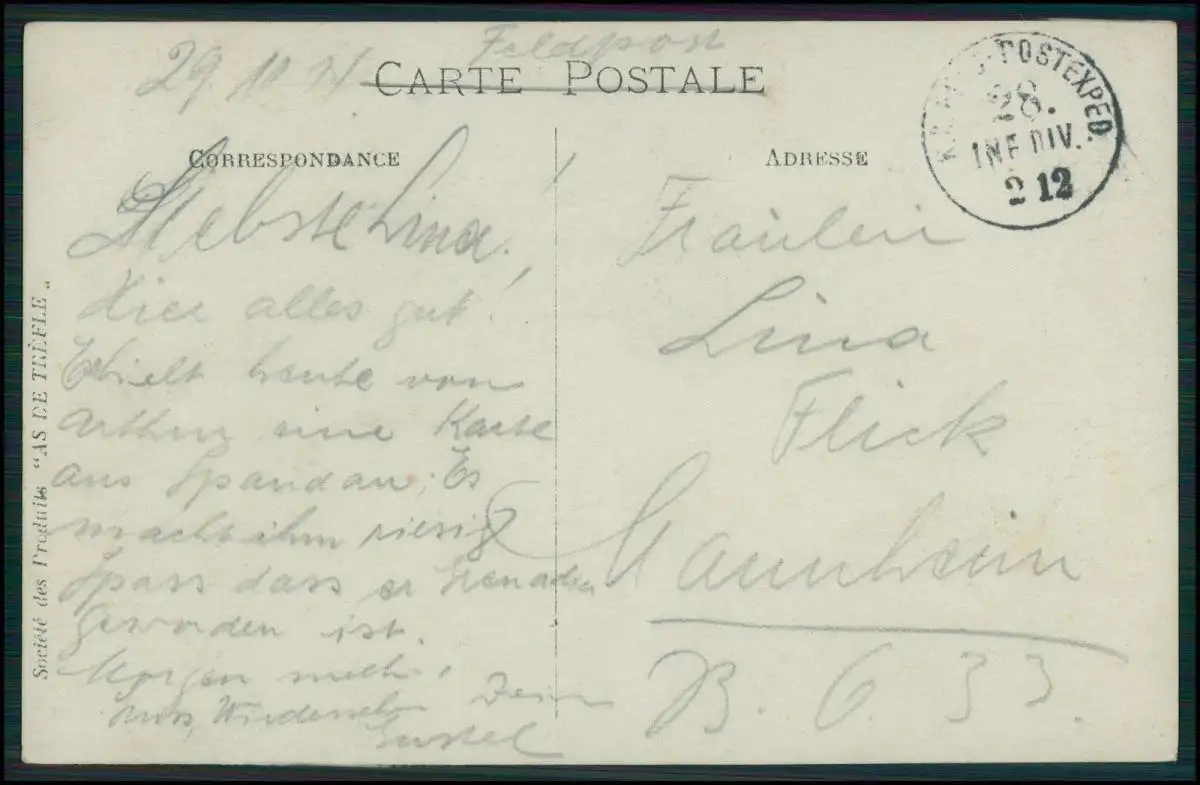 Feldpost
29. 11. 14
CARTE POSTALE
CORRESPONDANCE
ADRESSE
POSTEXPED.
28.
INF. DIV.
2 12
Liebste Lina!
Hier alles gut!
Erhielt heute von
Arthur eine Karte
aus Spandau. Es
macht ihm riesig
Spass dass er Grenadier
geworden ist.
Morgen mehr!
Kuss, Wiedersehn Dein
Gustel
Fräulein
Lina
Flick
Mannheim
B. 6. 33.
Société des Produits "AS DE TRÈFLE"